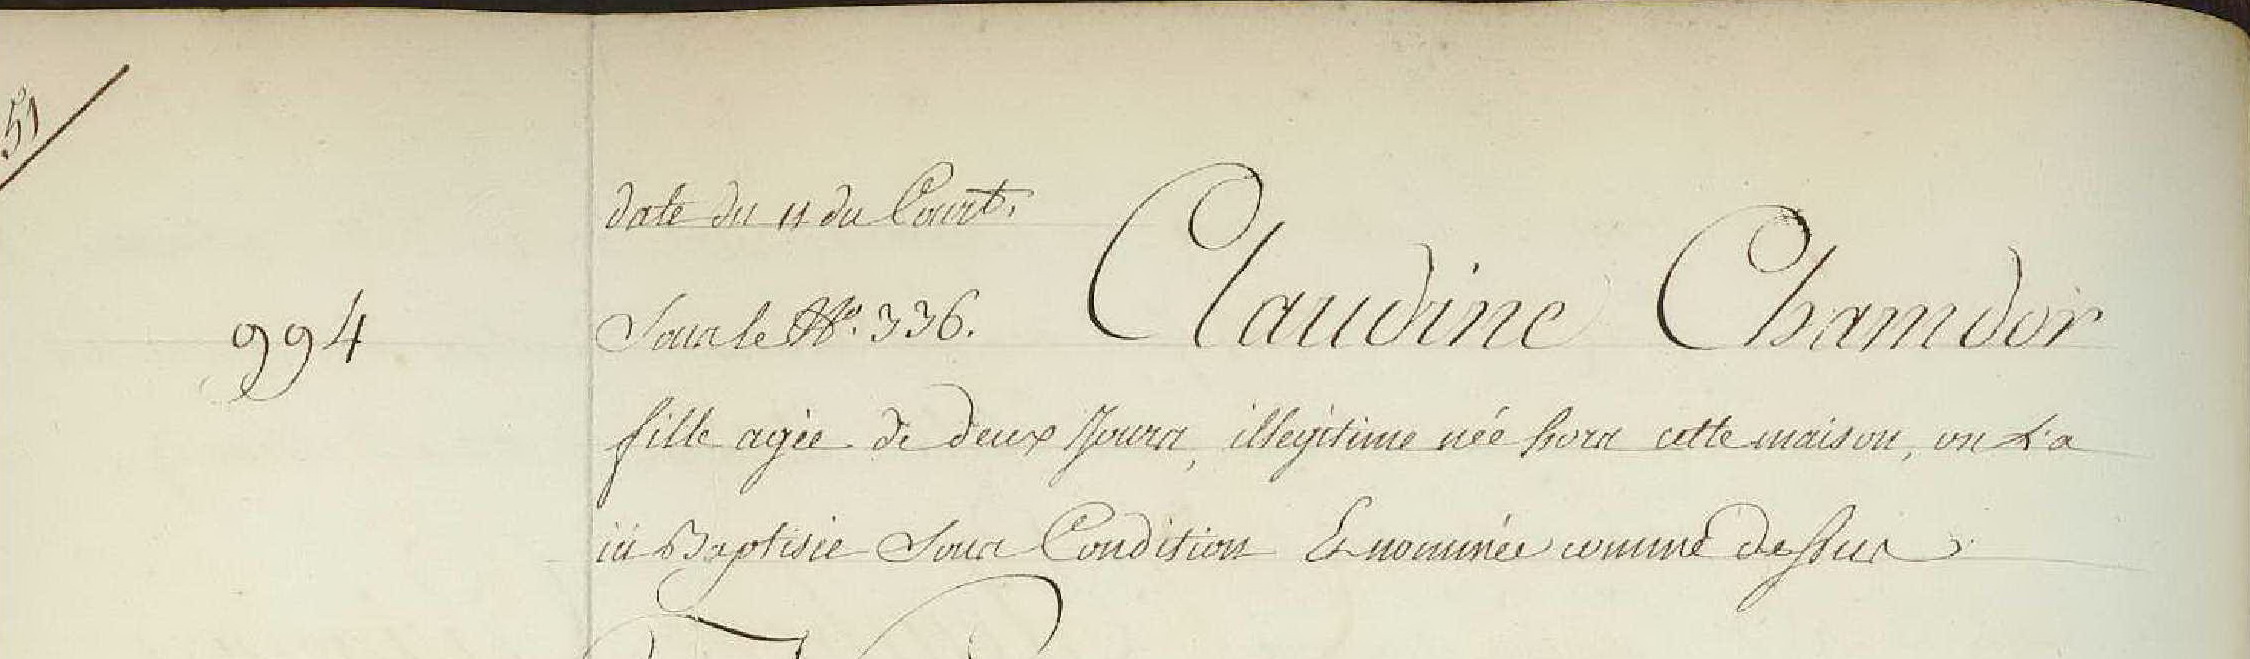 51
date du 11 du Cour.t
994 Sous le N.o 336. Claudine Chamdor
fille agée de deux Jours, illégitime née hors cette maison, on L'a
ici Baptisée Sous Condition & nommée comme dessus